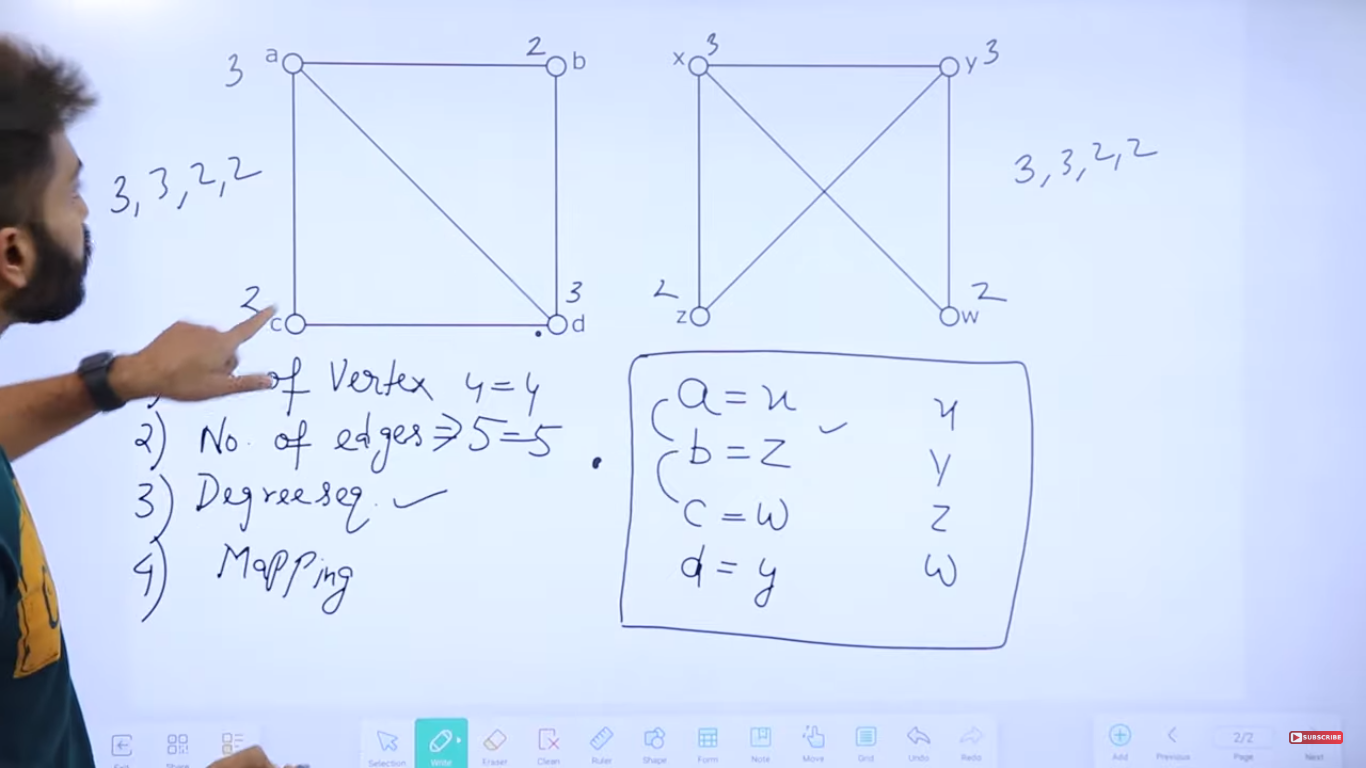 3 a 2 b
x 3 y 3
3, 3, 2, 2
3, 3, 2, 2
2 c 3 d
2 z 2 w
of Vertex 4 = 4
2) No. of edges ⇒ 5 = 5
3) Degree seq. ✓
4) Mapping
a = x
b = z ✓
c = w
d = y
x
y
z
w
Selection Write Eraser Clean Ruler Shape Form Note Move Grid Undo Redo
Add Previous 2/2 Page Next
SUBSCRIBE